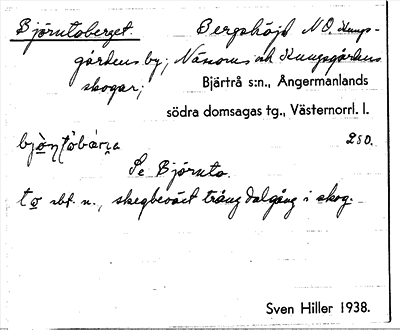 Björntoberget. Bergshöjd NO. Kungs-
gårdens by; Näsoms och Kungsgårdens
skogar; Bjärtrå s:n., Ångermanlands
södra domsagas tg., Västernorrl. l.
250.
Se Björnto.
to sbf. n., skogbeväxt trång dalgång i skog.
Sven Hiller 1938.